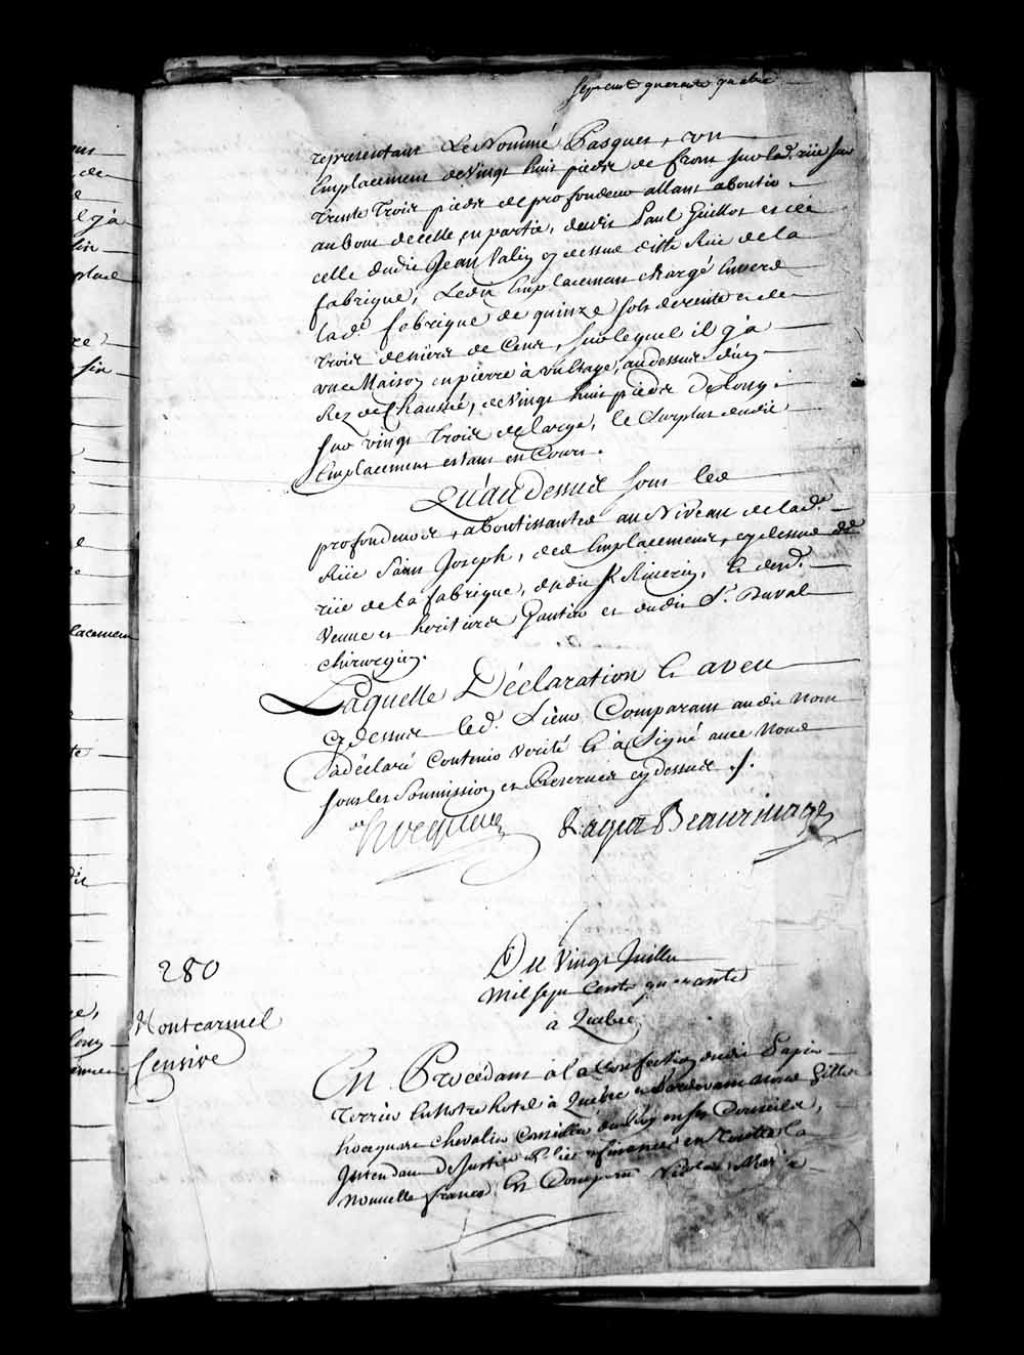 sept cent quarante quatre
representant Le Nommé Pasquer, un
Emplacement de Vingt huit pieds de front sur lad. rüe sur
trente trois pieds de profondeur allant aboutir
au bout de celle en partie, dudit Paul Guillot et
celle dudit Jean Valin cy dessus ditte Rüe de la
fabrique, Ledit Emplacement chargé Envers
lad. fabrique de quinze sols de rente et de
trois deniers de Cens, sur lequel il y a
une Maison en pierre à un Etage, au dessus du
Rez de Chaussée, de Vingt huit pieds de long
sur vingt trois de large, le Surplus dudit
Emplacement estant en Cour.
Qu'au dessus sont les
profondeurs, aboutissantes au Niveau de lad.
Rüe Saint Joseph, des Emplacements, cy dessus de
rüe de la fabrique, dudit Sr. Riverin, et desd.
Veuve et heritiers Gautier et dudit Sr. Duval
chirurgien.
Laquelle Déclaration et aveu
cy dessus led. Sieur Comparant audit nom
a déclaré Contenir Verité Et a Signé avec Nous
sous les Soumissions et Reserves cy dessus ./.
Hocquart
Du Vingt Juillet
Mil Sept Cents quarante
à Quebec
280
Montcarmel
Censive
En Procédant à la Confection dudit Papier
Terrier En Notre hotel à Quebec Pardevant Nous Gilles
hocquart Chevalier Conseiller du Roy en ses Conseils,
Intendant De Justice Police et finances en Toutte la
Nouvelle france, Est Comparu Nicolas